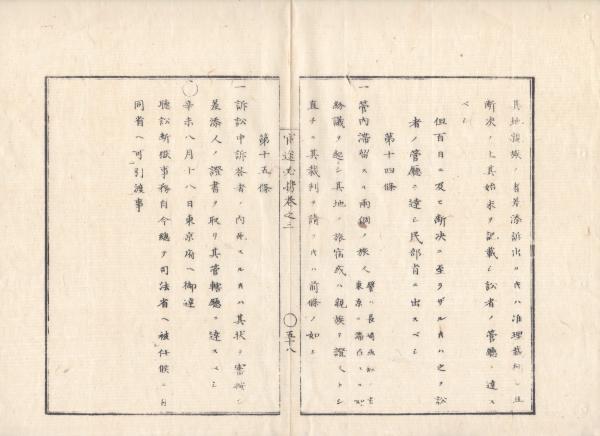 其地親族ノ者差添訴出ルハ准理裁判シ且
断決ノ上其始末ヲ記載シ訟者ノ管廳ニ達ス
ベシ
但百日ニ及ヒ断決ニ至ラザル片ハ之ヲ訟
者ノ管廳ニ達シ民部省ニ出スベシ
第十四條
一管内滞留スル両個ノ旅人
紛議ヲ起シ其地ノ旅宿或ハ親族ヲ證人トシ
直チニ其裁判ヲ請フ片ハ前條ノ如シ
卷之三
五十八
第十五條
一訴訟中訴答者ノ内死スル片ハ其状ヲ審按シ
差添人ノ證書ヲ取リ其管轄廳ニ達スベシ
○
辛未八月十八日東京府ヘ御達
聴訟断獄事務自今總テ司法省ヘ被任候ニ付
同省ヘ可引渡事